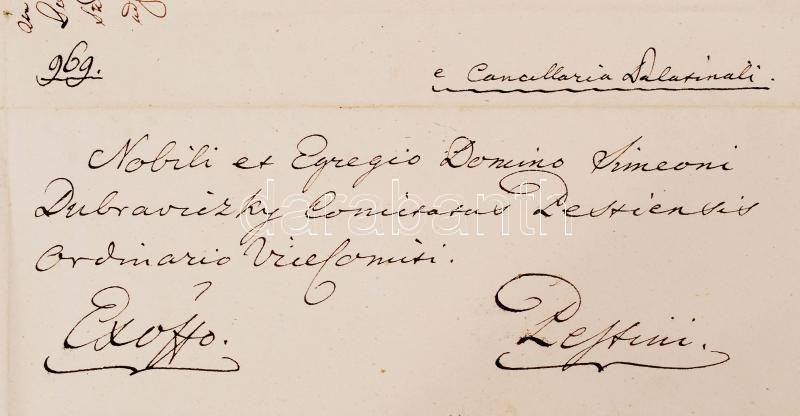 969.
e Cancellaria Palatinali.
Nobili et Egregio Domino Simeoni
Dubraviczky Comitatus Pestiensis
Ordinario ViceComiti.
Exoffo.
Pestini.
darabanth